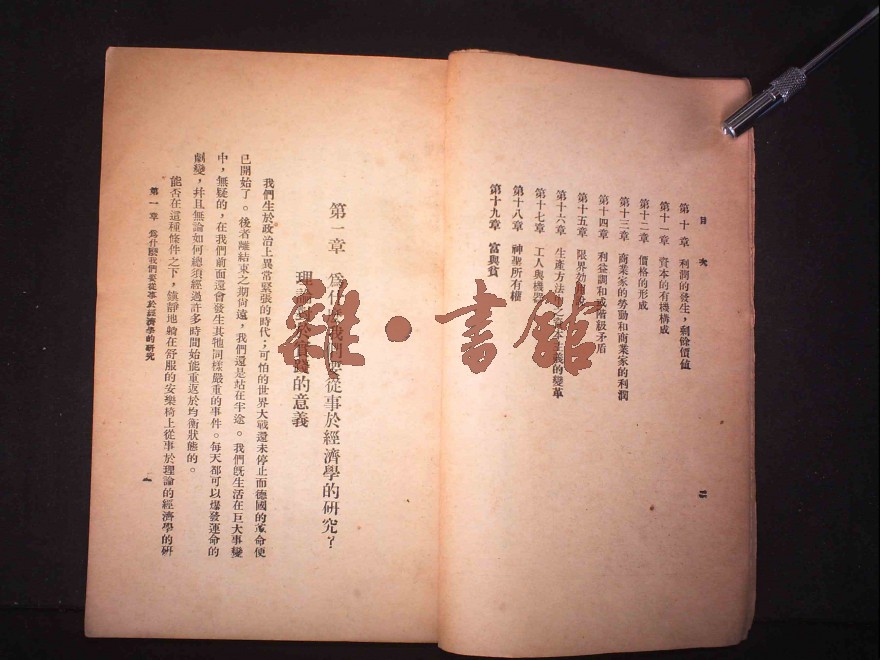 目次
第十章 利潤的發生，剩餘價值
第十一章 資本的有機構成
第十二章 價格的形成
第十三章 商業家的勞動和商業家的利潤
第十四章 利益調和或階級矛盾
第十五章 限界効用說
第十六章 生產方法中之資本主義的變革
第十七章 工人與機器
第十八章 神聖所有權
第十九章 富與貧
第一章 爲什麼我們要從事於經濟學的研究？
理論對於實踐的意義
我們生於政治上異常緊張的時代；可怕的世界大戰還未停止而德國的革命便
已開始了。後者離結束之期尙遠，我們還是站在半途。我們旣生活在巨大事變
中，無疑的，在我們前面還會發生其牠同樣嚴重的事件。每天都可以爆發運命的
劇變，幷且無論如何總須經過許多時間始能重返於均衡狀態的。
能否在這種條件之下，鎮靜地躺在舒服的安樂椅上從事於理論的經濟學的硏
第一章 爲什麼我們要從事於經濟學的研究
一
雜·書館